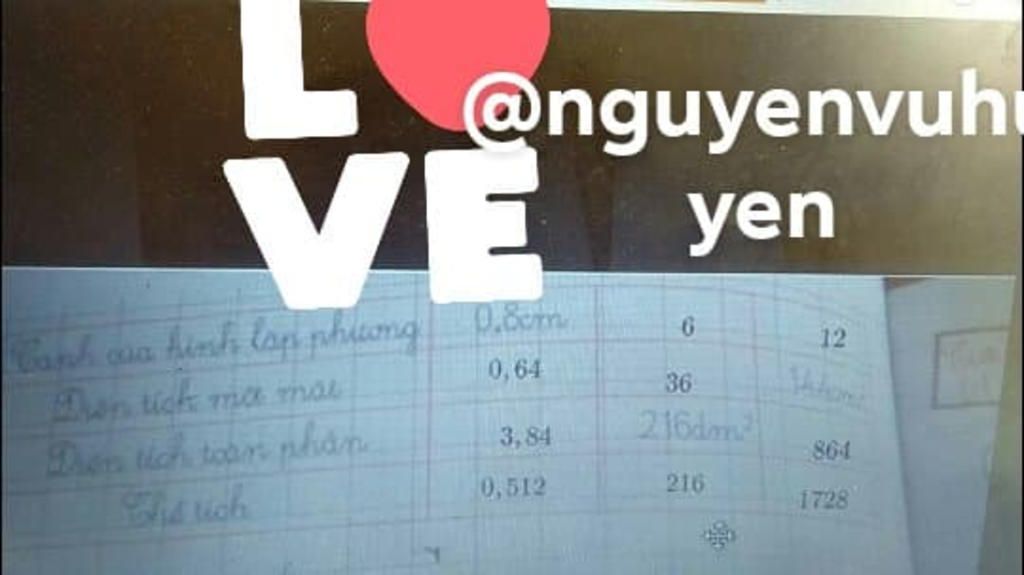 LO
@nguyenvuhu
yen
VE
Cạnh của hình lập phương 0,8cm 6 12
Diện tích một mặt 0,64 36
Diện tích toàn phần 3,84 216dm² 864
Thể tích 0,512 216 1728